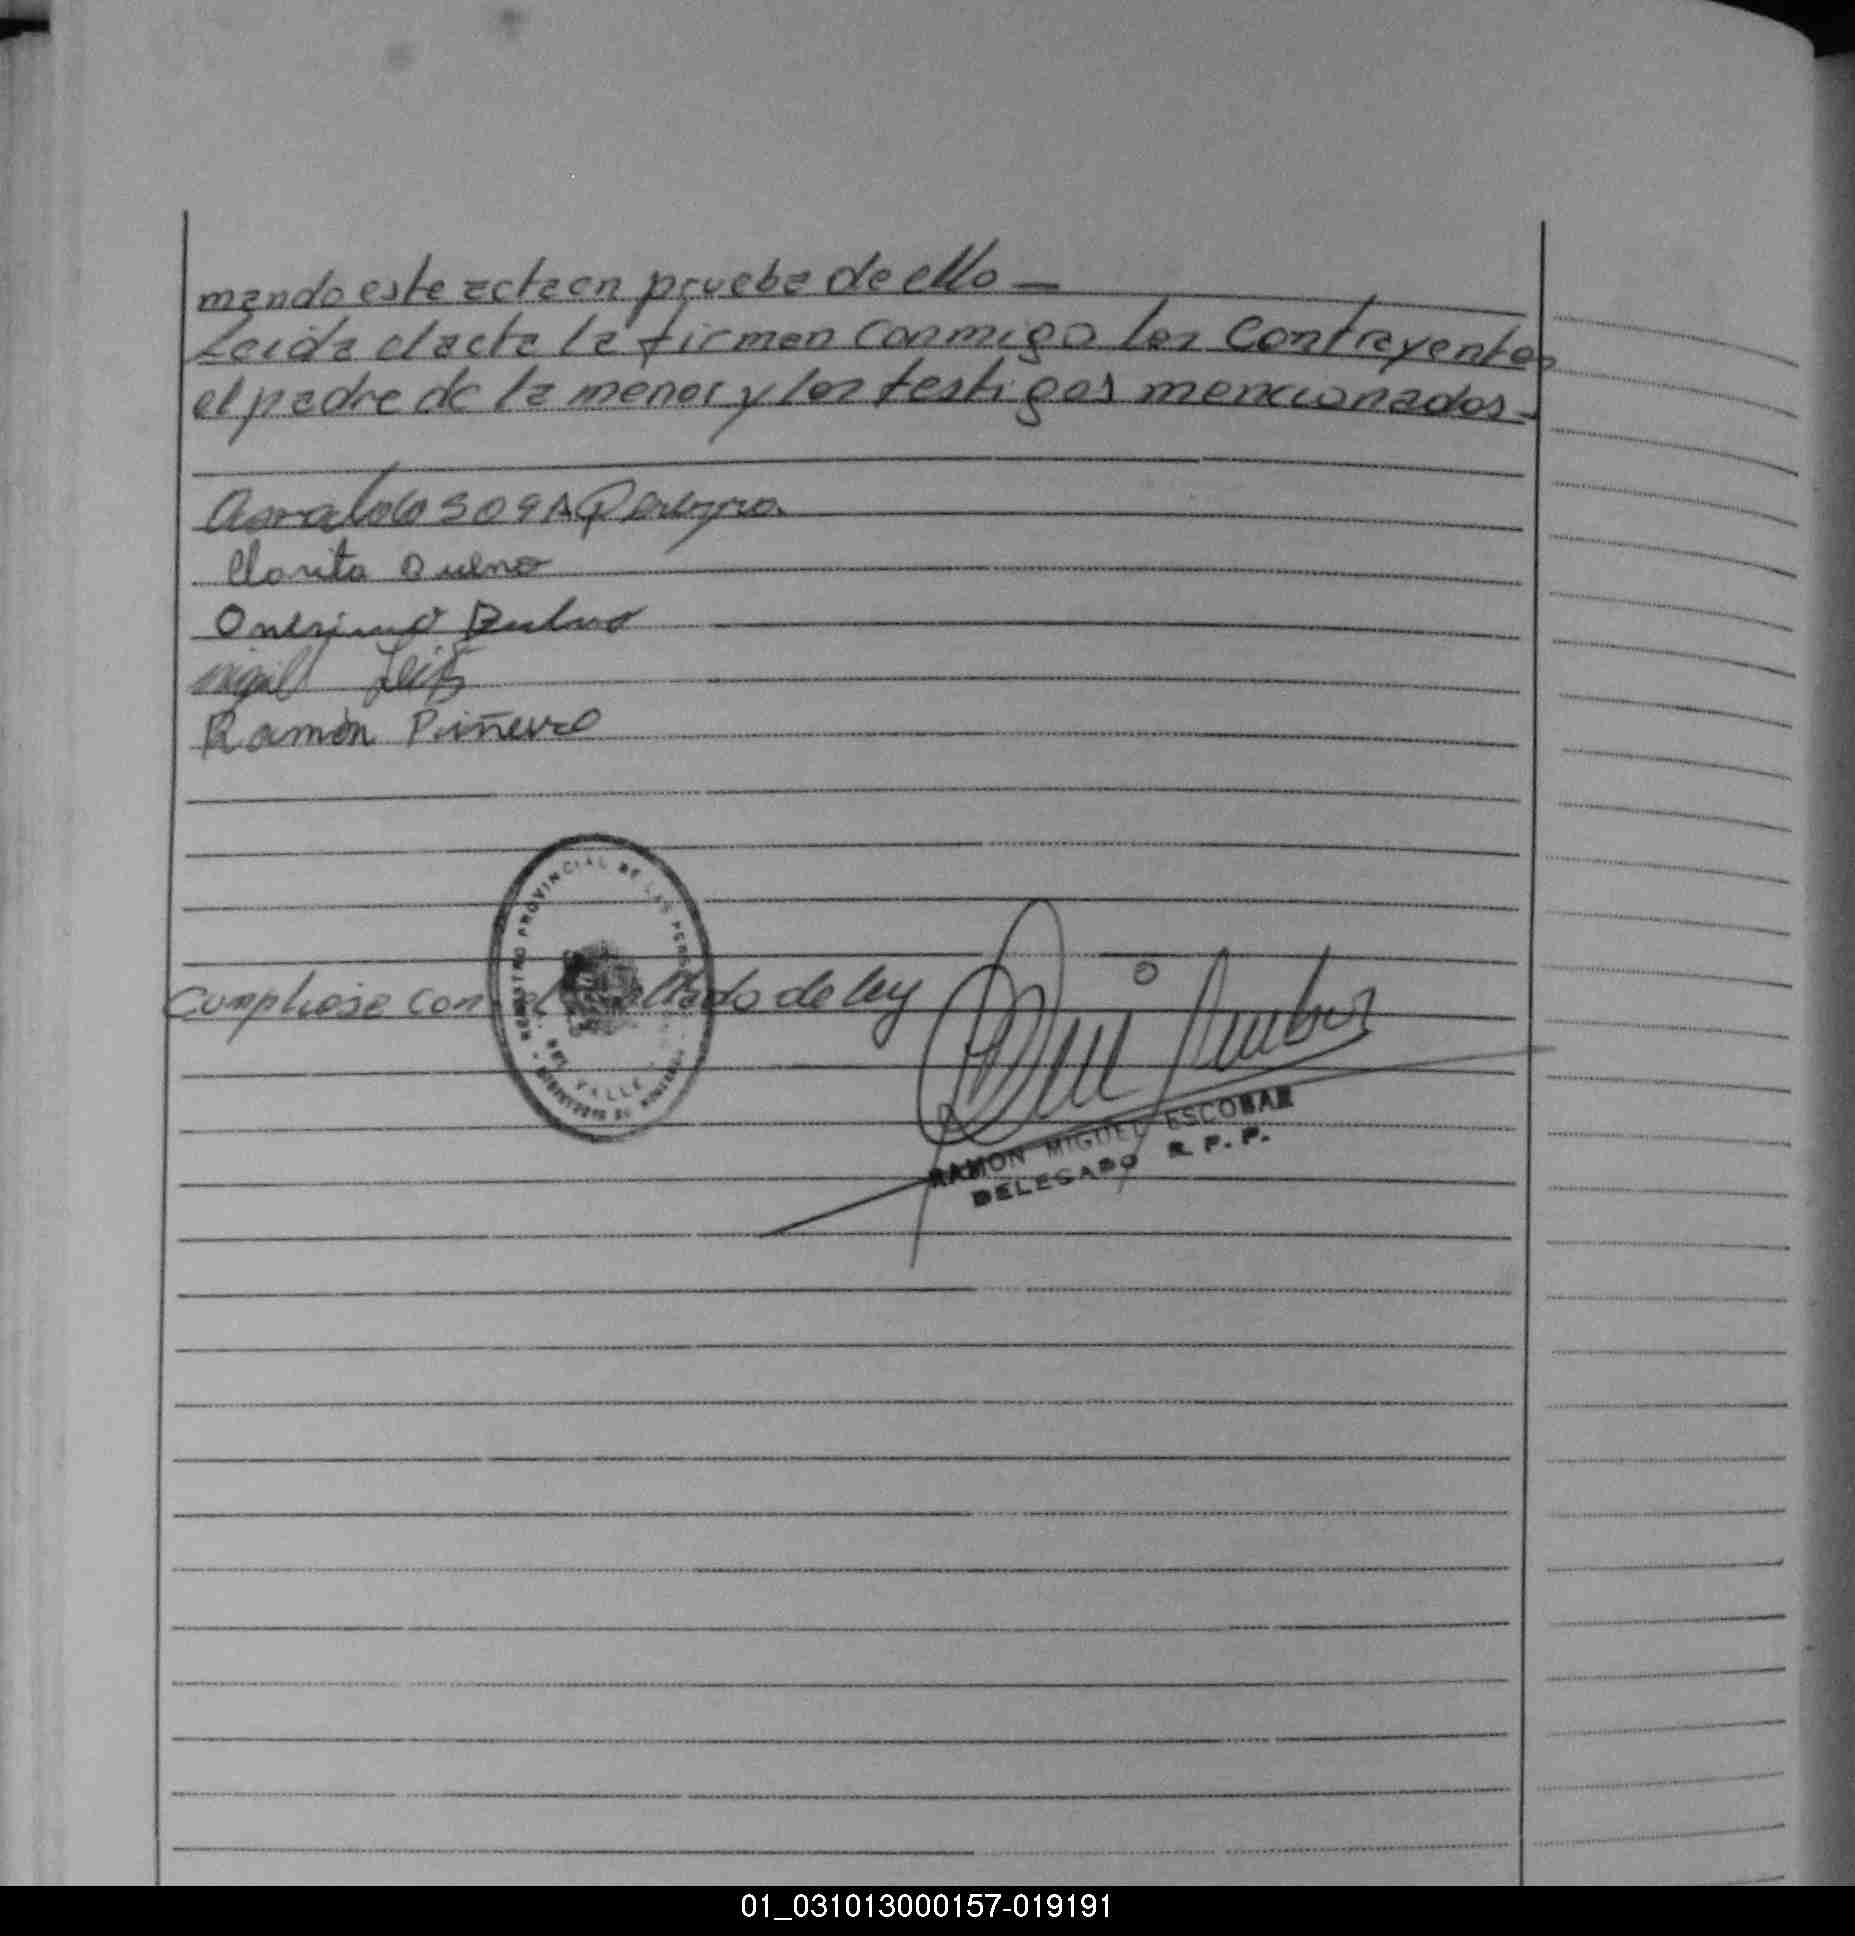 mando este acta en prueba de ello —
Leida el acta la firman conmigo los Contrayentes
el padre de la menor y los testigos mencionados-
SOSA Pereyra
Clarita Bueno
Onesimo Bueno
Miguel
Ramón Piñeiro
REGISTRO PROVINCIAL DE LAS PERSONAS
VALLE
Cumpliose con el sellado de ley
RAMON MIGUEL ESCOBAR
DELEGADO R. P. P.
01_031013000157-019191